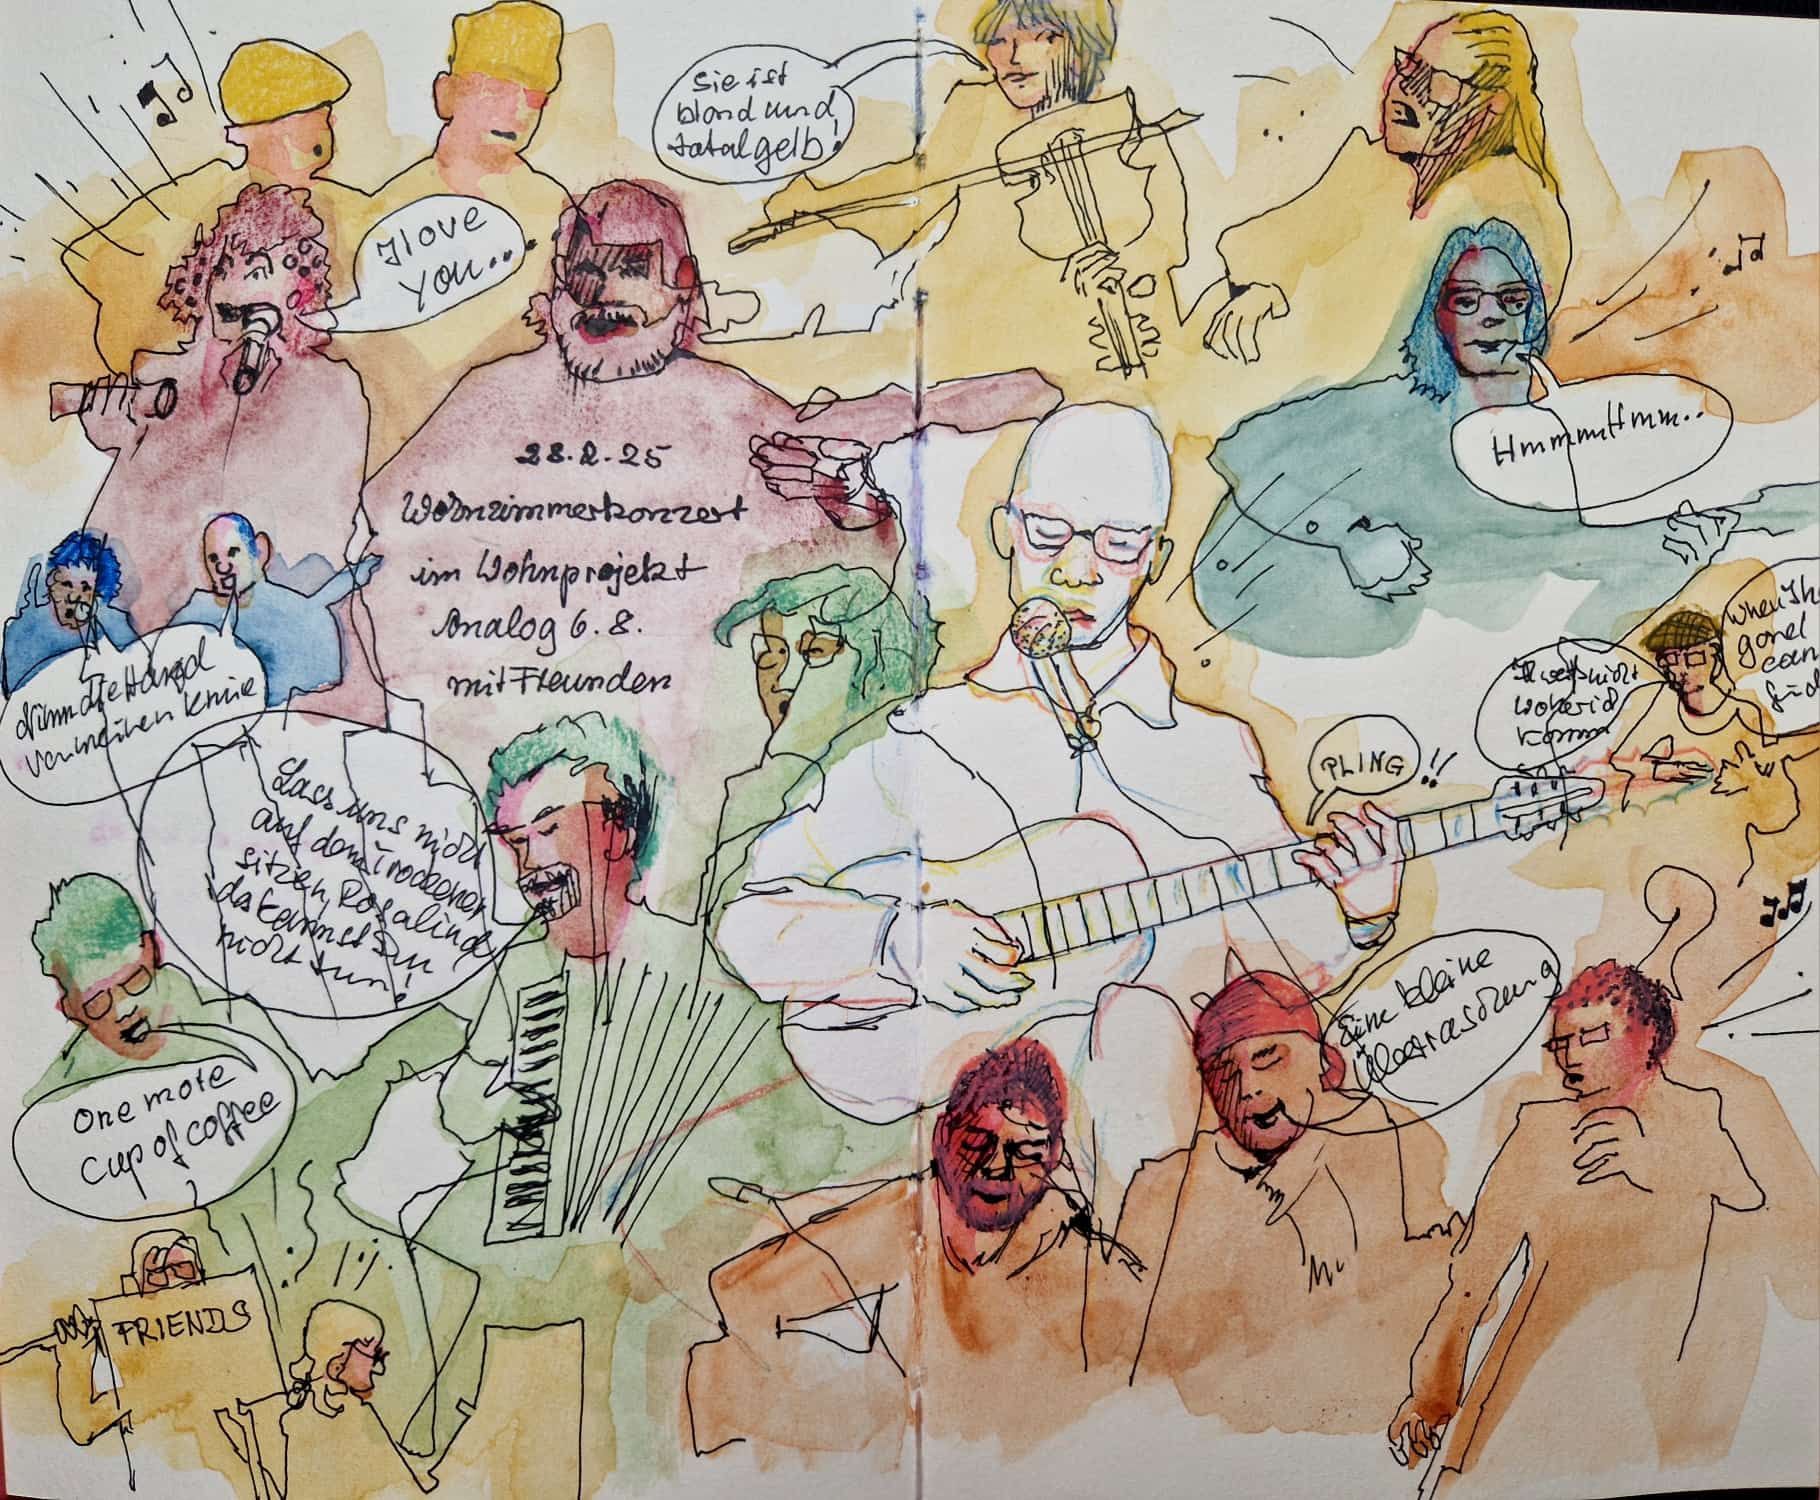 Sie ist
blond und
total gelb!
I love
you..
Hmmmmhmm..
28.2.25
Wohnzimmerkonzert
im Wohnprojekt
Analog 6.8.
mit Freunden
Nimm die Hand
von meinen Knie
Lass uns nicht
auf dem Trockenen
sitzen, Rosalind
da kannst Du
nicht tun!
PLING!!
Ich weiß nicht
woher ich
komm
When I
gone
can
One more
cup of coffee
Eine kleine
Überraschung
FRIENDS